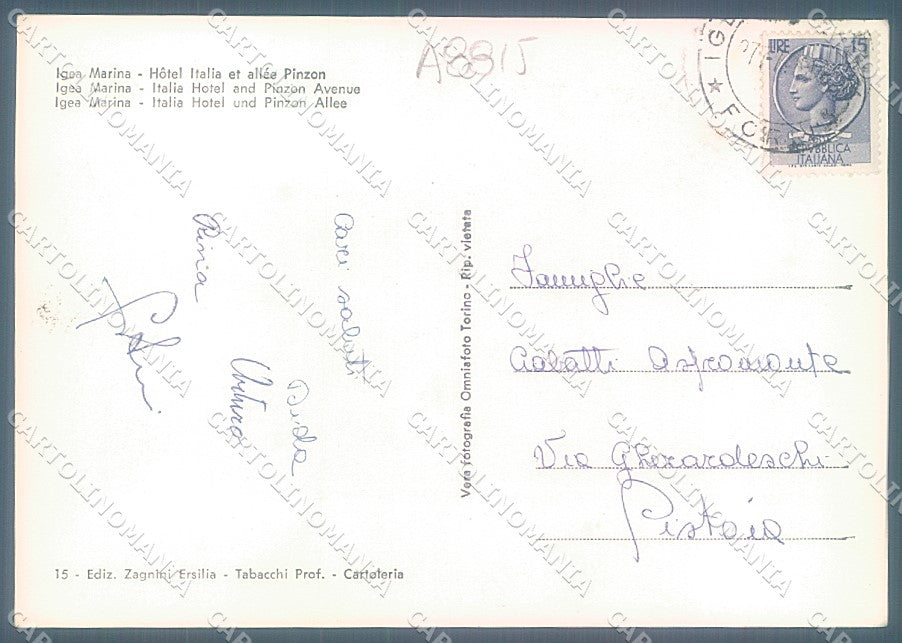 A8815
Igea Marina - Hôtel Italia et allée Pinzon
Igea Marina - Italia Hotel and Pinzon Avenue
Igea Marina - Italia Hotel und Pinzon Allee
LIRE 15
REPUBBLICA
ITALIANA
★ FOR
Cari saluti
Arturo
Vera fotografia Omniafoto Torino - Rip. vietata
Famiglie
Gabatti Aspromonte
Via Gherardeschi
Pistoia
15 - Ediz. Zagnini Ersilia - Tabacchi Prof. - Cartoleria
CARTOLINOMANIA